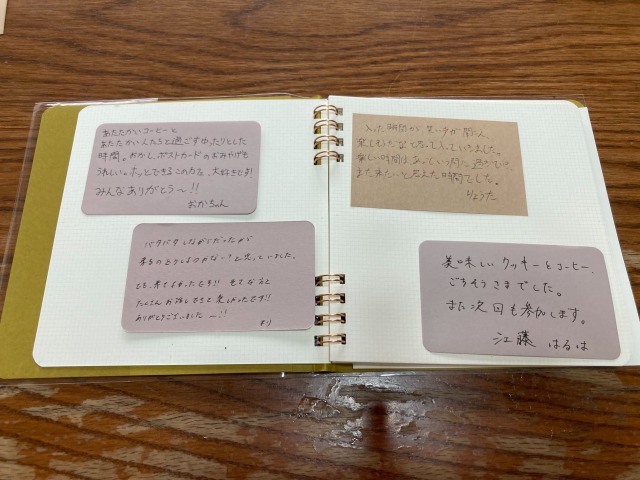 あたたかいコーヒーと
あたたかい人たちと過ごすゆったりとした
時間。おかし、ポストカードのおみやげも
うれしい。ホッとできるこのカフェ、大好きです!
みんなありがとう〜!!
おかちゃん
バタバタしながらだったから
来るのどうしようかな…?と思っていました。
でも、来てよかったです!! 色々な方と
たくさんお話しできて楽しかったです!!
ありがとうございました〜!!
入った時間から、笑い声が聞こえ、
楽しもうと
楽しい時間はあっという間に過ぎて
また来たいと思えた時間でした。
りょうた
美味しいクッキーとコーヒー、
ごちそうさまでした。
また次回も参加します。
江藤 はるは